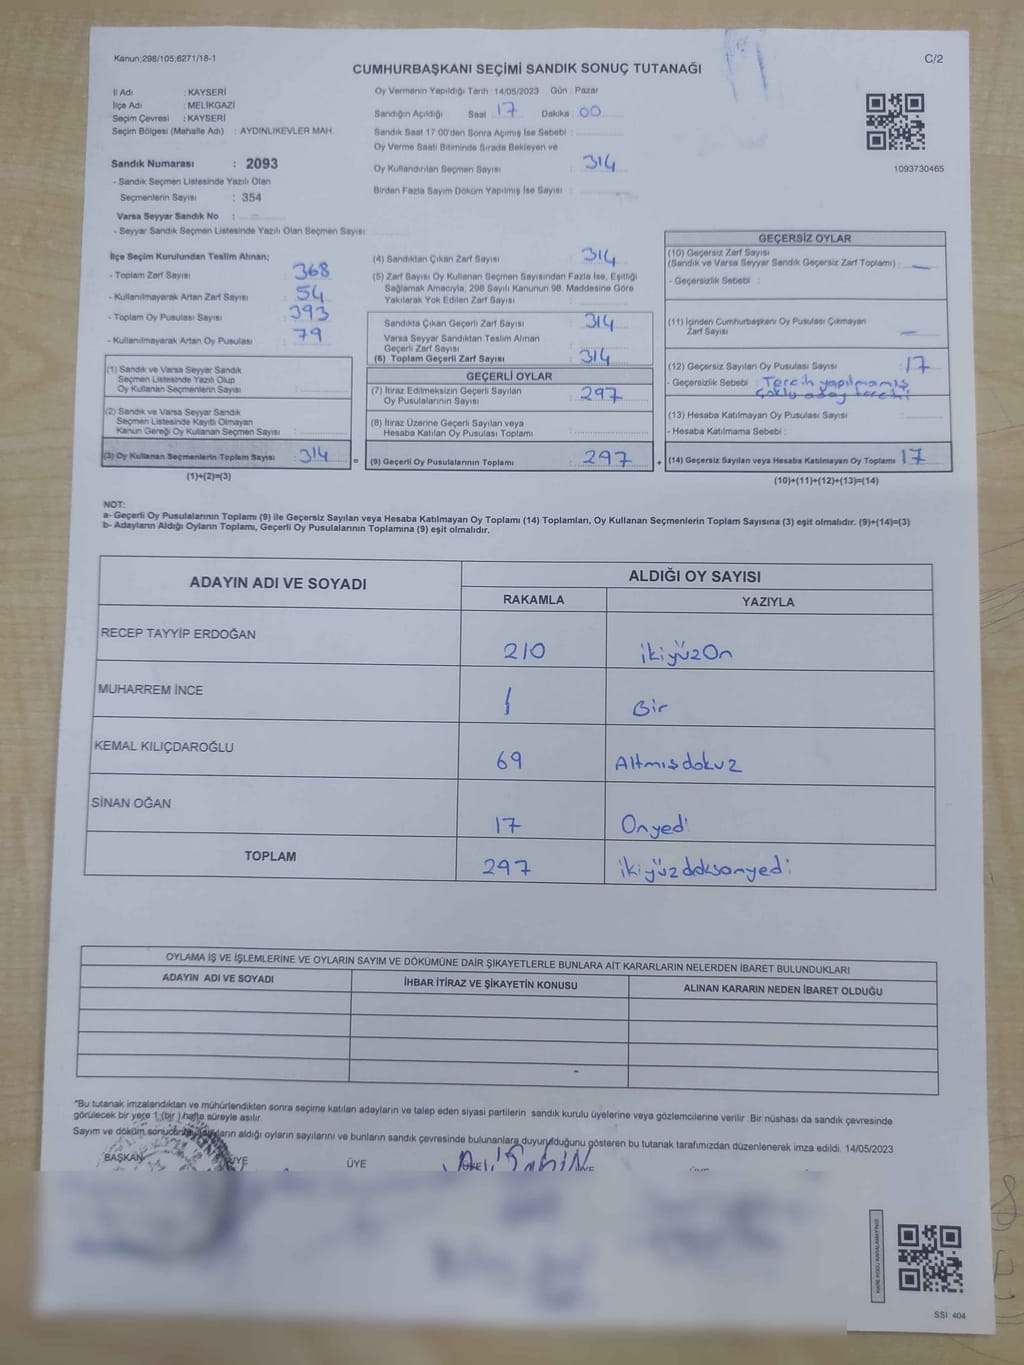 Kanun;298/105;6271/18-1
C/2
CUMHURBAŞKANI SEÇİMİ SANDIK SONUÇ TUTANAĞI
İl Adı : KAYSERİ
İlçe Adı : MELİKGAZİ
Seçim Çevresi : KAYSERİ
Seçim Bölgesi (Mahalle Adı) : AYDINLIKEVLER MAH.
Sandık Numarası : 2093
- Sandık Seçmen Listesinde Yazılı Olan
Seçmenlerin Sayısı : 354
Varsa Seyyar Sandık No :
- Seyyar Sandık Seçmen Listesinde Yazılı Olan Seçmen Sayısı
Oy Vermenin Yapıldığı Tarih : 14/05/2023 Gün : Pazar
Sandığın Açıldığı Saat 17 Dakika : 00
Sandık Saat 17:00'den Sonra Açımış İse Sebebi :
Oy Verme Saati Bitiminde Sırada Bekleyen ve
Oy Kullandırılan Seçmen Sayısı : 314
Birden Fazla Sayım Döküm Yapılmış İse Sayısı :
1093730465
İlçe Seçim Kurulundan Teslim Alınan;
- Toplam Zarf Sayısı : 368
- Kullanılmayarak Artan Zarf Sayısı : 54
- Toplam Oy Pusulası Sayısı : 393
- Kullanılmayarak Artan Oy Pusulası : 79
(1) Sandık ve Varsa Seyyar Sandık
Seçmen Listesinde Yazılı Olup
Oy Kullanan Seçmenlerin Sayısı :
(2) Sandık ve Varsa Seyyar Sandık
Seçmen Listesinde Kayıtlı Olmayan
Kanun Gereği Oy Kullanan Seçmen Sayısı :
(3) Oy Kullanan Seçmenlerin Toplam Sayısı : 314
(1)+(2)=(3)
(4) Sandıktan Çıkan Zarf Sayısı : 314
(5) Zarf Sayısı Oy Kullanan Seçmen Sayısından Fazla İse, Eşitliği
Sağlamak Amacıyla, 298 Sayılı Kanunun 98. Maddesine Göre
Yakılarak Yok Edilen Zarf Sayısı :
Sandıkta Çıkan Geçerli Zarf Sayısı : 314
Varsa Seyyar Sandıktan Teslim Alınan
Geçerli Zarf Sayısı :
(6) Toplam Geçerli Zarf Sayısı : 314
GEÇERLİ OYLAR
(7) İtiraz Edilmeksizin Geçerli Sayılan
Oy Pusulalarının Sayısı : 297
(8) İtiraz Üzerine Geçerli Sayılan veya
Hesaba Katılan Oy Pusulası Toplamı :
= (9) Geçerli Oy Pusulalarının Toplamı : 297
GEÇERSİZ OYLAR
(10) Geçersiz Zarf Sayısı
(Sandık ve Varsa Seyyar Sandık Geçersiz Zarf Toplamı) : —
- Geçersizlik Sebebi :
(11) İçinden Cumhurbaşkanı Oy Pusulası Çıkmayan
Zarf Sayısı : —
(12) Geçersiz Sayılan Oy Pusulası Sayısı : 17
- Geçersizlik Sebebi : Tercih yapılmamış
çoklu aday tercihi
(13) Hesaba Katılmayan Oy Pusulası Sayısı
- Hesaba Katılmama Sebebi :
+ (14) Geçersiz Sayılan veya Hesaba Katılmayan Oy Toplamı 17
(10)+(11)+(12)+(13)=(14)
NOT:
a- Geçerli Oy Pusulalarının Toplamı (9) ile Geçersiz Sayılan veya Hesaba Katılmayan Oy Toplamı (14) Toplamları, Oy Kullanan Seçmenlerin Toplam Sayısına (3) eşit olmalıdır. (9)+(14)=(3)
b- Adayların Aldığı Oyların Toplamı, Geçerli Oy Pusulalarının Toplamına (9) eşit olmalıdır.
ADAYIN ADI VE SOYADI
ALDIĞI OY SAYISI
RAKAMLA YAZIYLA
RECEP TAYYİP ERDOĞAN 210 ikiyüzOn
MUHARREM İNCE 1 Bir
KEMAL KILIÇDAROĞLU 69 Altmışdokuz
SİNAN OĞAN 17 Onyedi
TOPLAM 297 ikiyüzdoksanyedi
OYLAMA İŞ VE İŞLEMLERİNE VE OYLARIN SAYIM VE DÖKÜMÜNE DAİR ŞİKAYETLERLE BUNLARA AİT KARARLARIN NELERDEN İBARET BULUNDUKLARI
ADAYIN ADI VE SOYADI İHBAR İTİRAZ VE ŞİKAYETİN KONUSU ALINAN KARARIN NEDEN İBARET OLDUĞU
"Bu tutanak imzalandıktan ve mühürlendikten sonra seçime katılan adayların ve talep eden siyasi partilerin sandık kurulu üyelerine veya gözlemcilerine verilir .Bir nüshası da sandık çevresinde
görülecek bir yere 1 (bir ) hafta süreyle asılır.
Sayım ve döküm aldığı oyların sayılarını ve bunların sandık çevresinde bulunanlara duyurulduğunu gösteren bu tutanak tarafımızdan düzenlenerek imza edildi. 14/05/2023
BAŞKAN ÜYE ÜYE
SSI 404